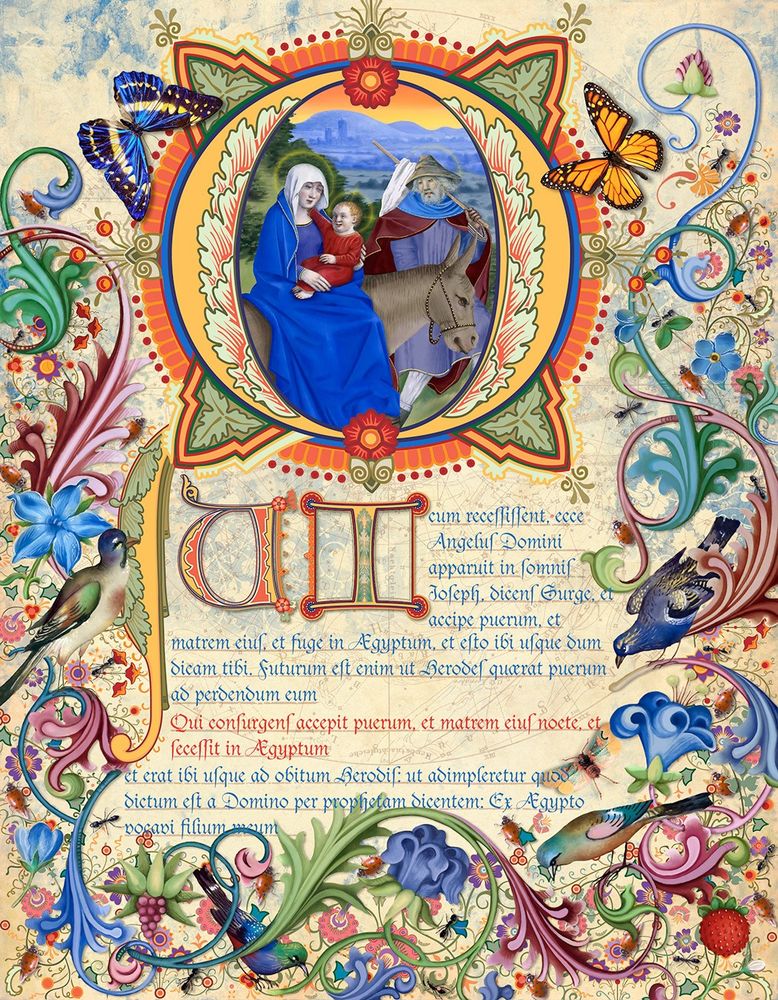 QUI
cum receſſiſſent, ecce
Angeluſ Domini
apparuit in ſomniſ
Joſeph, dicenſ Surge, et
accipe puerum, et
matrem eiuſ, et fuge in Ægyptum, et eſto ibi uſque dum
dicam tibi. Futurum eſt enim ut Herodeſ quærat puerum
ad perdendum eum
Qui conſurgenſ accepit puerum, et matrem eiuſ nocte, et
ſeceſſit in Ægyptum
et erat ibi uſque ad obitum Herodiſ: ut adimpleretur quod
dictum eſt a Domino per prophetam dicentem: Ex Ægypto
vocavi filium meum